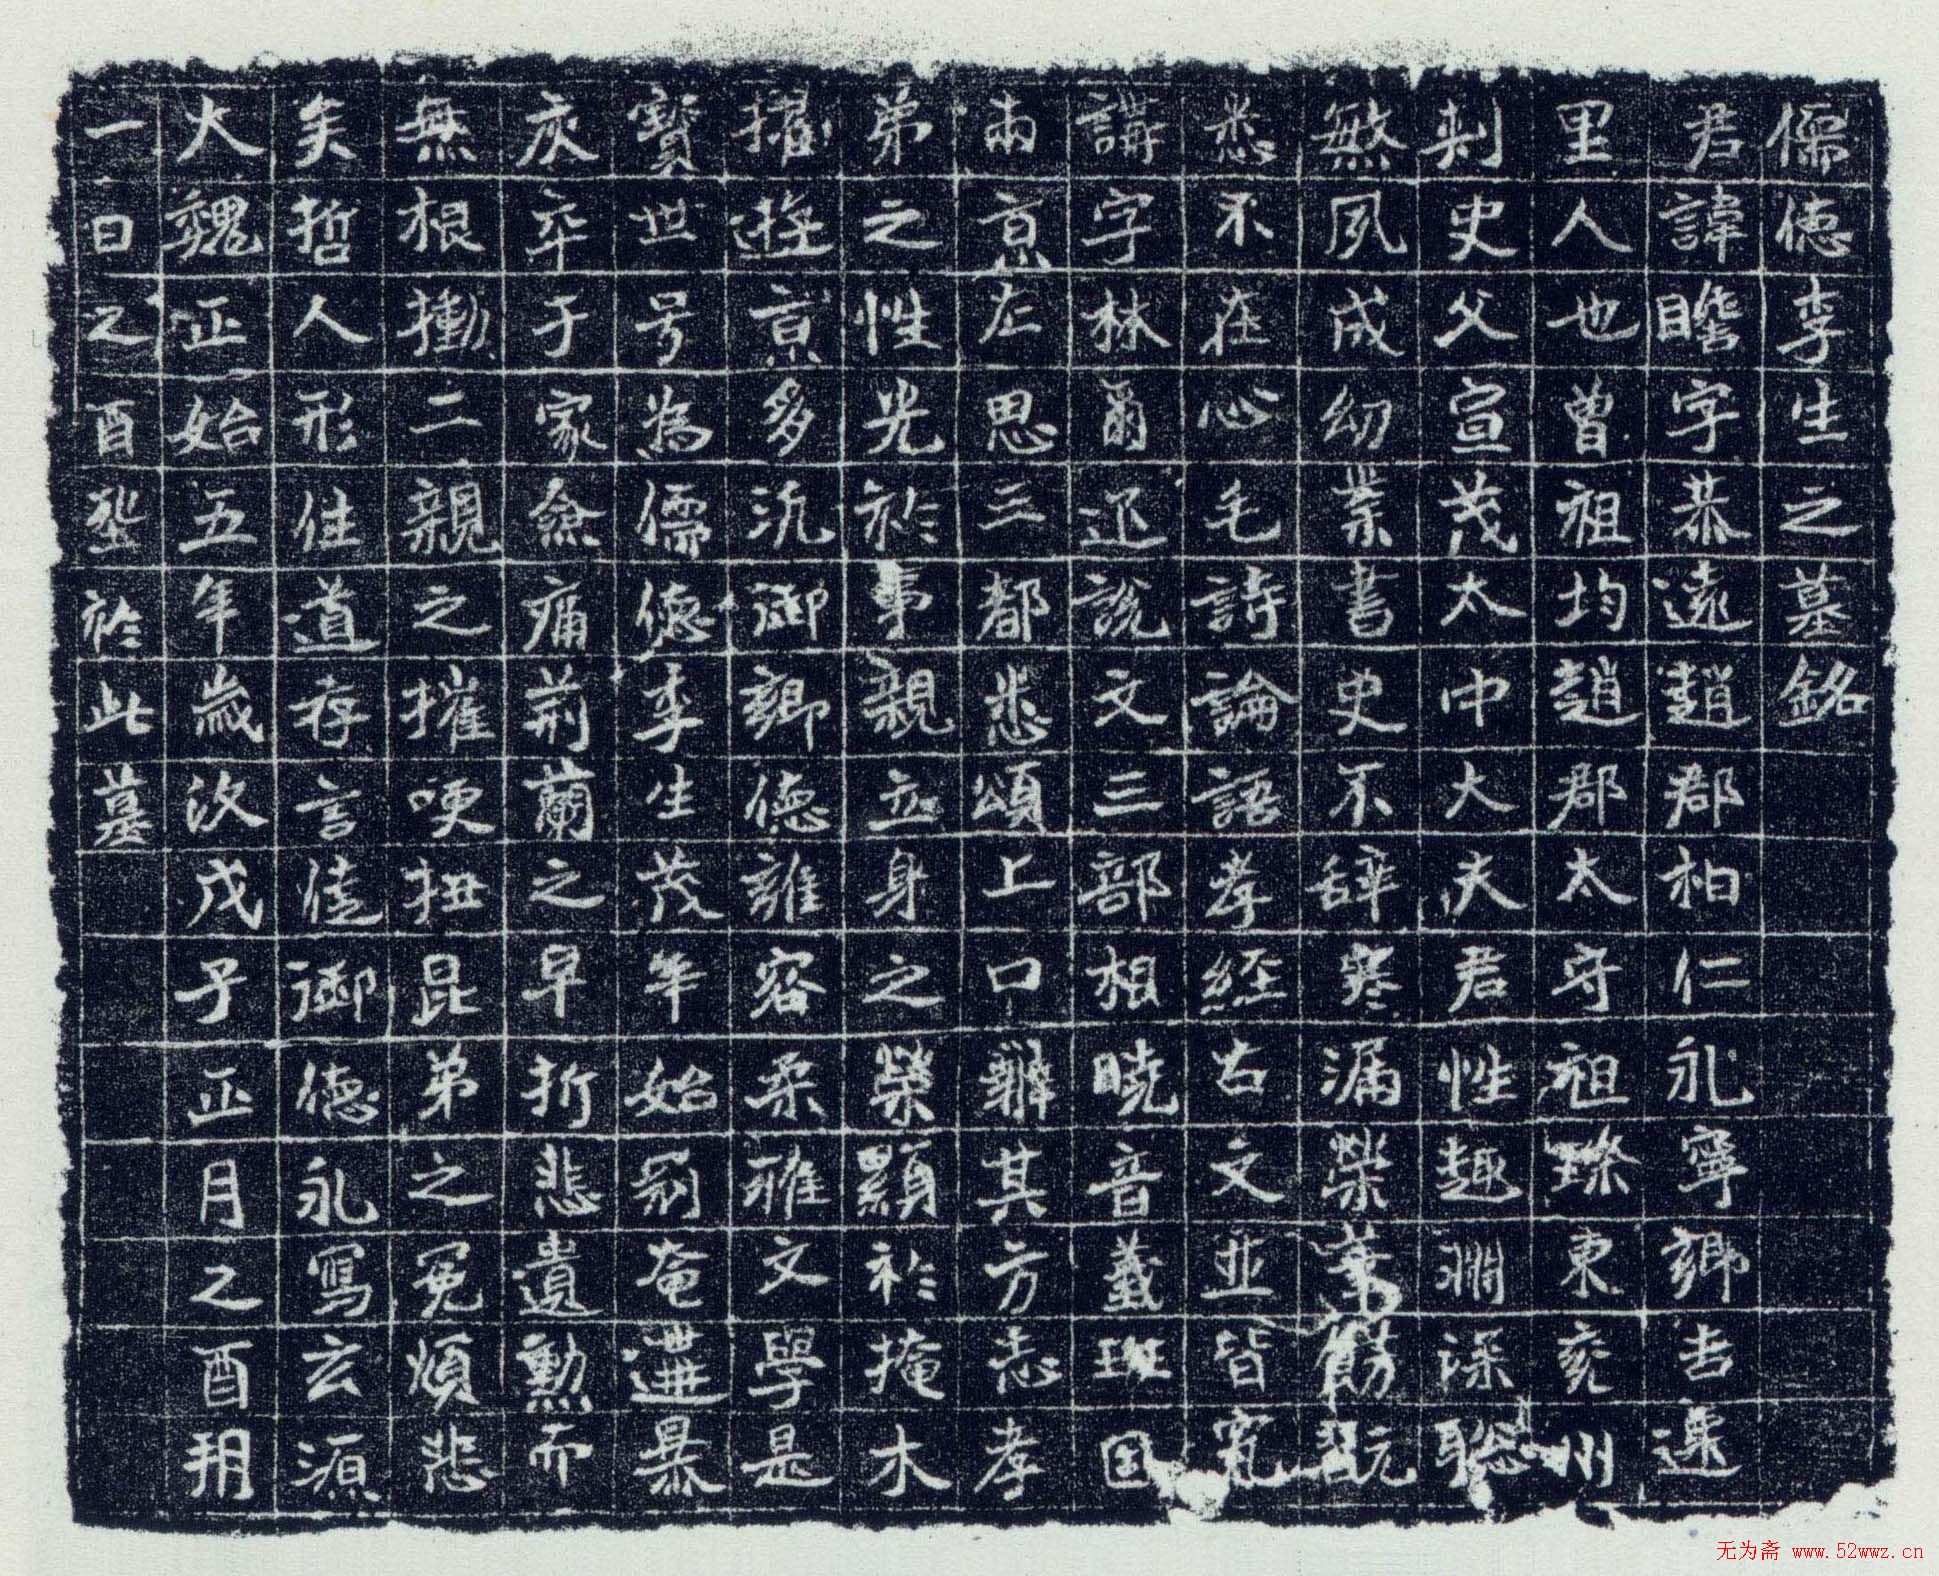 儒德李生之墓銘
君諱瞻字恭遠趙郡柏仁永寧鄉吉遷
里人也曾祖均趙郡太守祖璨東兗州
刺史父宣茂太中大夫君性趣淵深聡
敏夙成幼業書史不辞寒漏榮業勗翫
悉不在心毛詩論語孝經古文並皆究
講字林爾迩說文三部相曉音義班固
兩京左思三都悉頌上口辨其方志孝
弟之性光於事親立身之榮顯於掩木
擢遊京多沉御鄉德雍容柔雅文學是
寶世号為儒德李生茂年始冠奄遘暴
疾卒于家僉痛荊蘭之早折悲遺勲而
無根慟二親之摧哽扭昆弟之冤煩悲
矣哲人形徃道存言徍御德永寫玄源
大魏正始五年歲次戊子正月之酉朔
一日之酉埊於此墓
无为斋 www.52wwz.cn